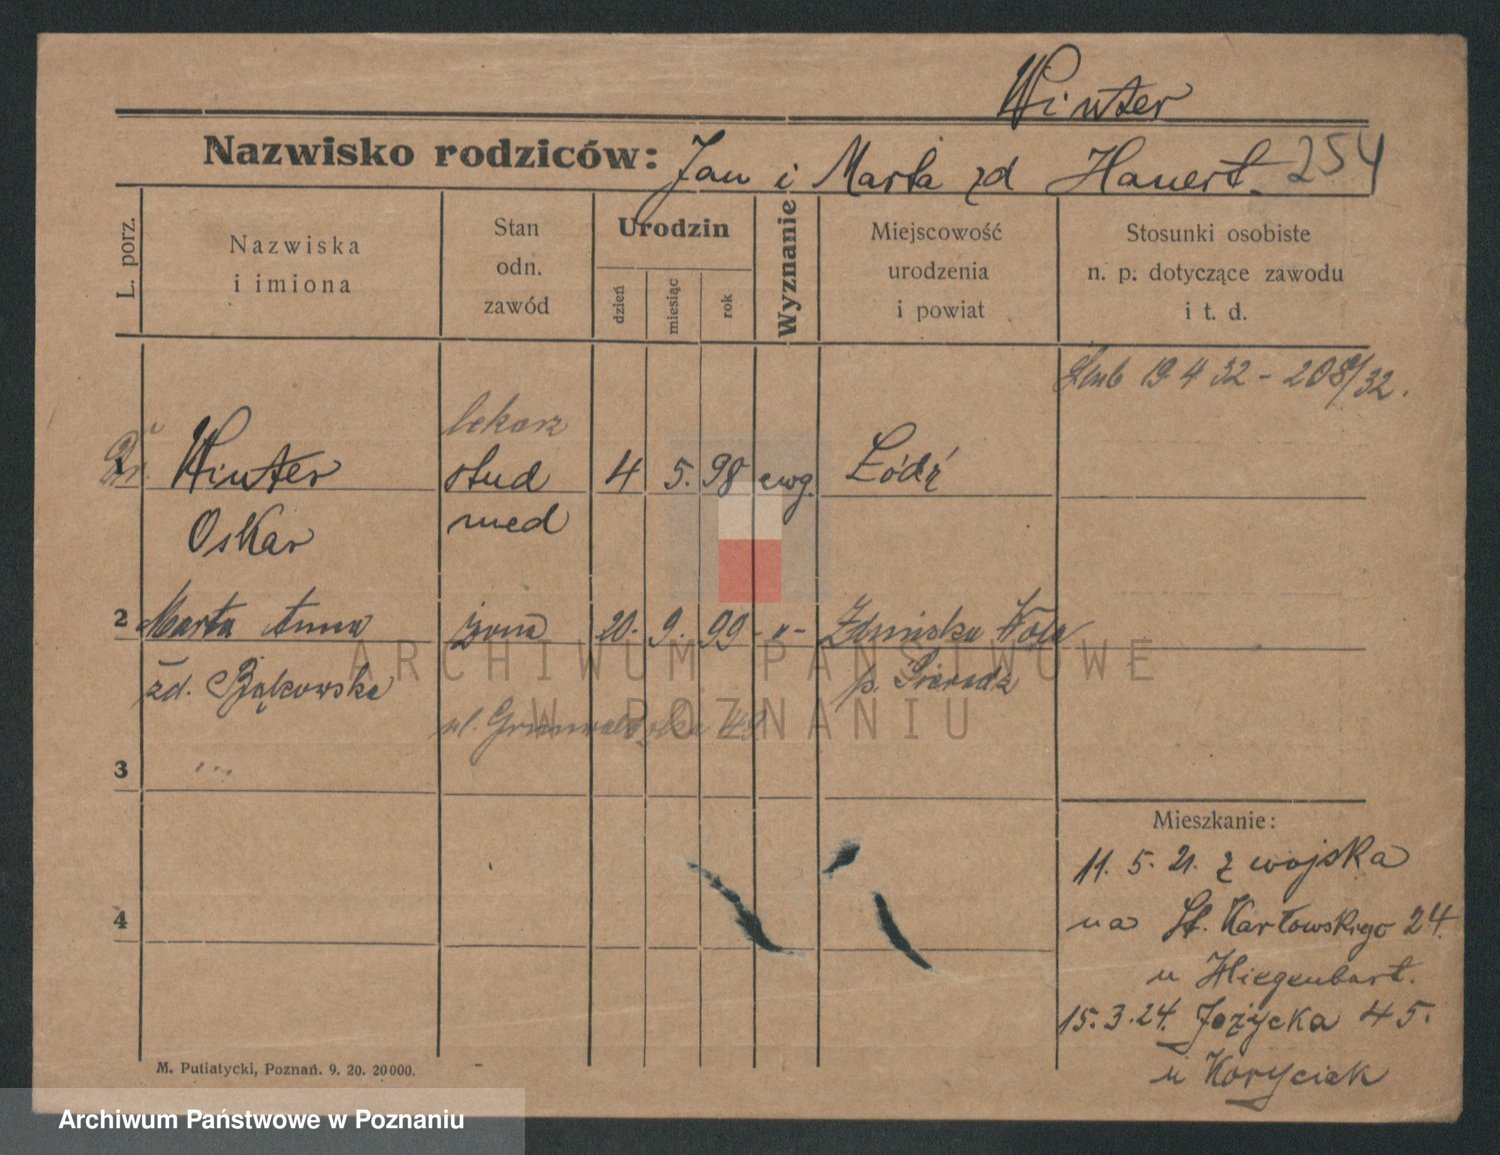 Winter
Nazwisko rodziców: Jan i Marta zd Hauert. 254
L. porz.
Nazwiska
i imiona
Stan
odn.
zawód
Urodzin
dzień
miesiąc
rok
Wyznanie
Miejscowość
urodzenia
i powiat
Stosunki osobiste
n. p. dotyczące zawodu
i t. d.
Ślub 19 4 32 - 208/32.
lekarz
Dr. Winter stud 4 5. 98 ewg. Łódź
Oskar med
2 Marta Anna żona 20. 9. 99 -"- Zduńska Wola
zd. Bąkowska p. Sieradz
ul. Grunwaldzka 49
3
4
Mieszkanie:
11. 5. 21. z wojska
na St. Karłowskiego 24.
u Hiegenbart.
15. 3. 24. Jeżycka 45.
u Koryciak
M. Putiatycki, Poznań. 9. 20. 20000.
ARCHIWUM PAŃSTWOWE
W POZNANIU
Archiwum Państwowe w Poznaniu